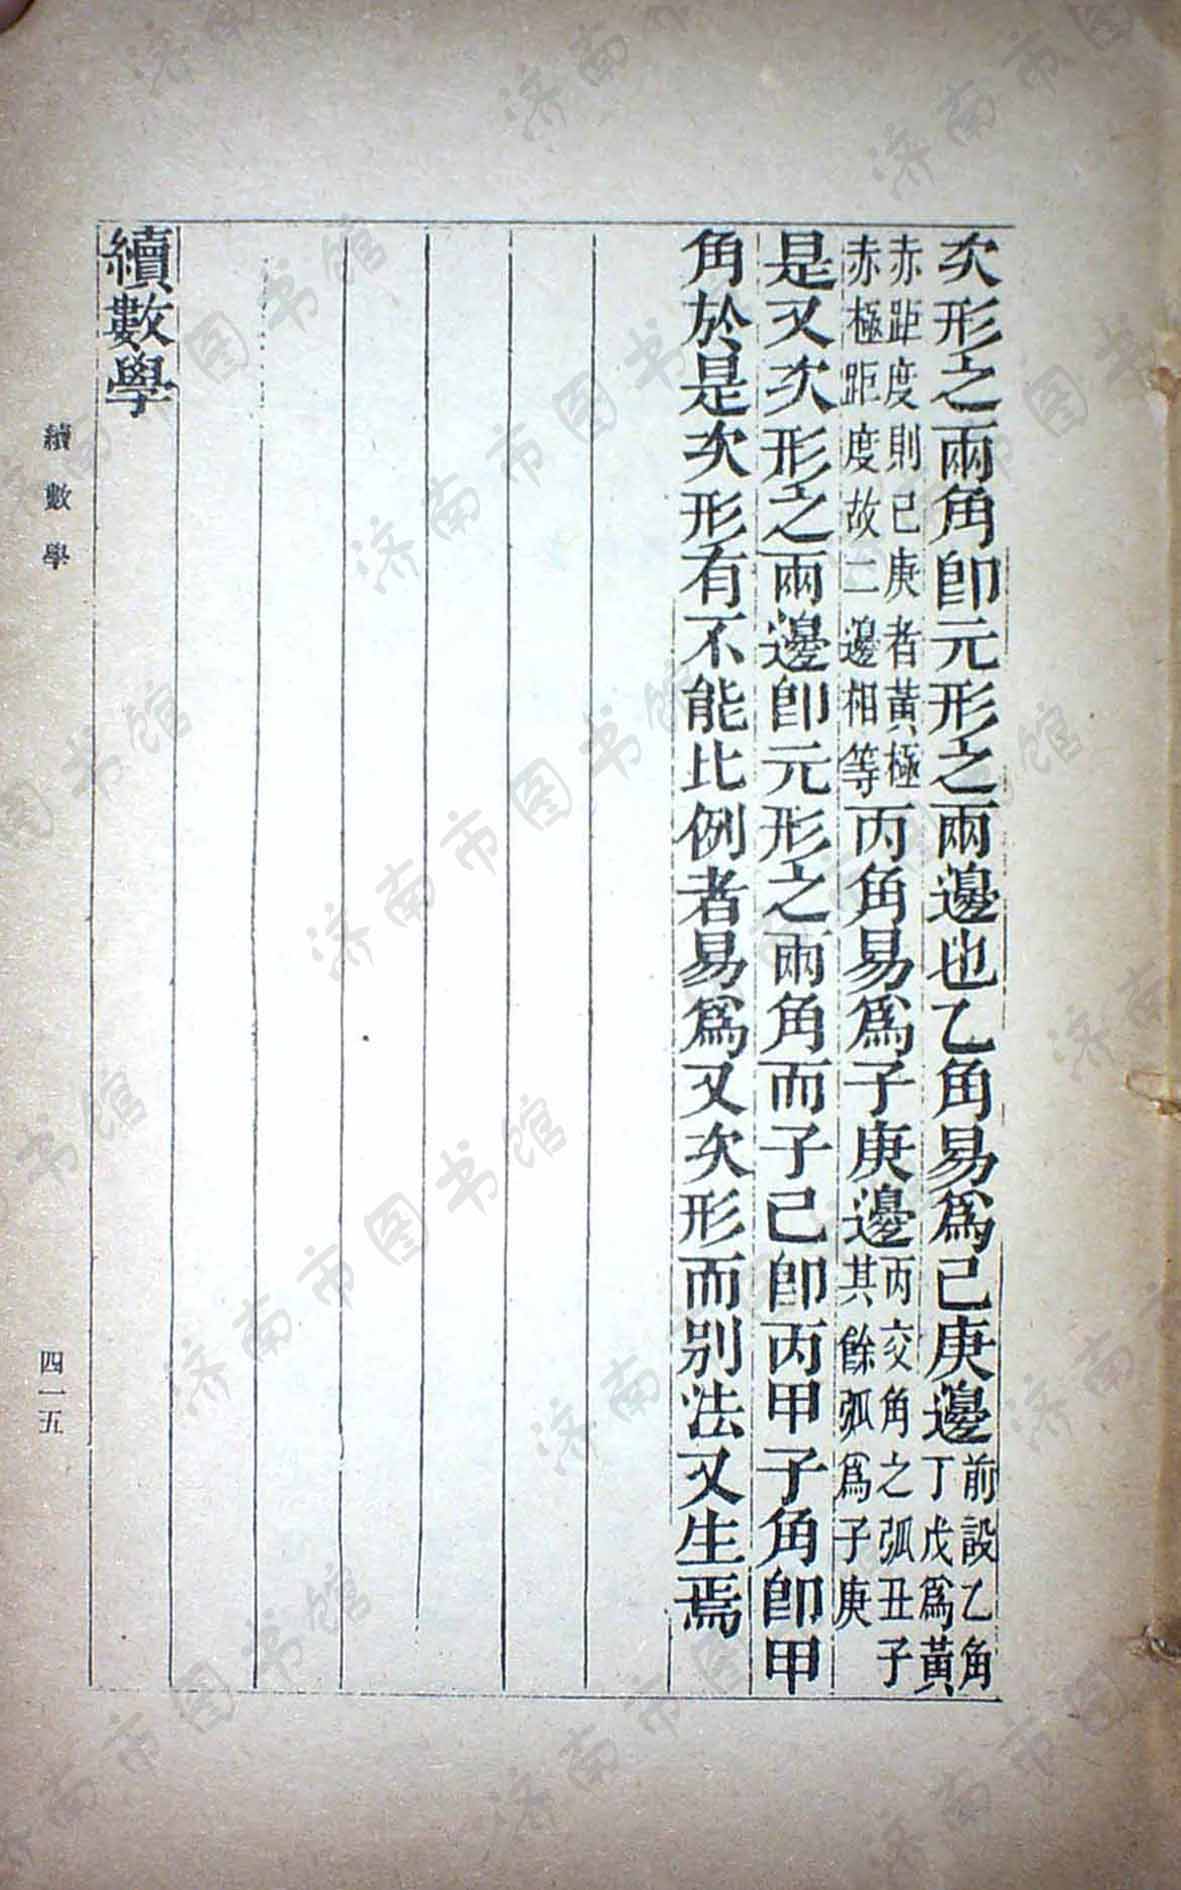 次形之兩角卽元形之兩邊也乙角易爲己庚邊前設乙角丁戊爲黃
赤距度則己庚者黃極赤極距度故二邊相等丙角易爲子庚邊丙交角之弧丑子其餘弧爲子庚
是又次形之兩邊卽元形之兩角而子己卽丙甲子角卽甲
角於是次形有不能比例者易爲又次形而別法又生焉
續數學
續數學
四一五
济南市图书馆